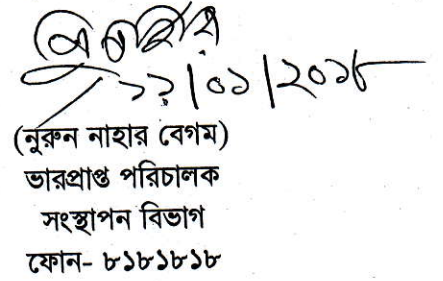 ২২|০১|২০১৮
(নুরুন নাহার বেগম)
ভারপ্রাপ্ত পরিচালক
সংস্থাপন বিভাগ
ফোন- ৮১৮১৮১৮